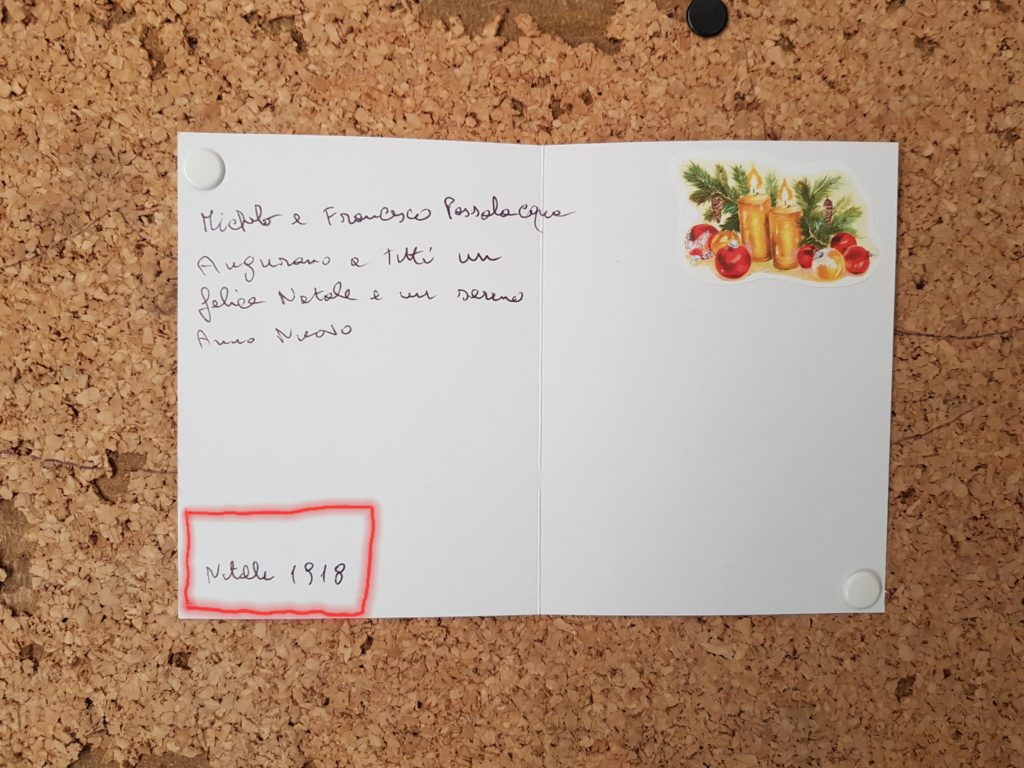 Michele e Francesco Passalacqua
Augurano a tutti un
felice Natale e un sereno
Anno Nuovo
Natale 1918